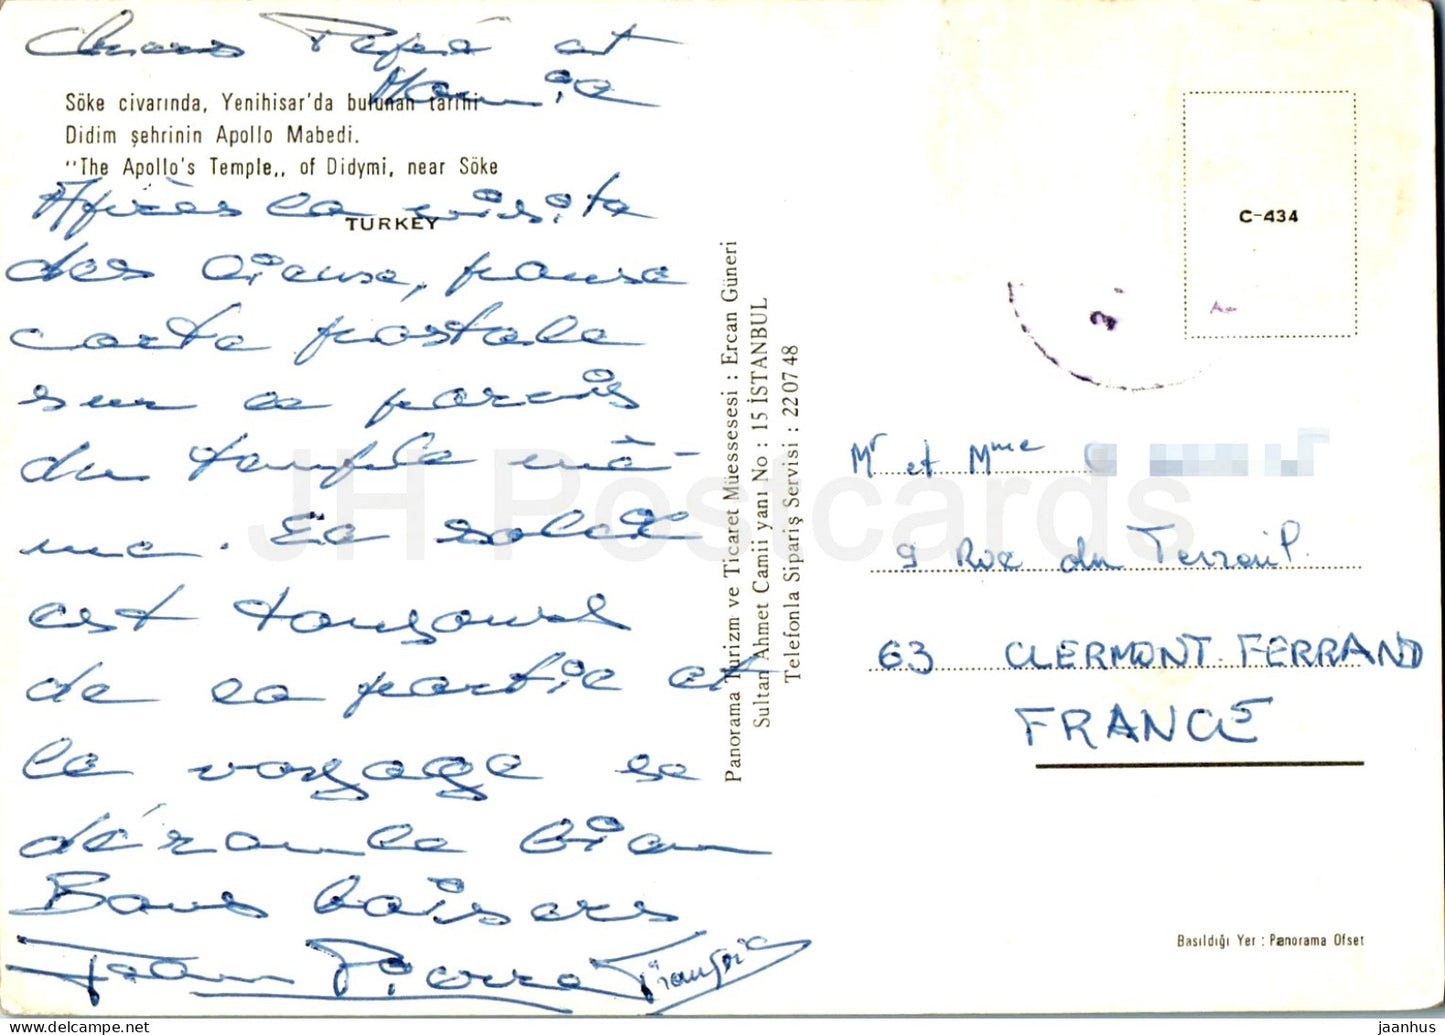 Chers Papa et
Mamie
Söke civarında, Yenihisar'da bulunan tarihi
Didim şehrinin Apollo Mabedi.
"The Apollo's Temple,, of Didymi, near Söke
TURKEY
Après la visite
des lieux, pause
carte postale
sur le parvis
du temple mê-
me. Le soleil
est toujours
de la partie et
le voyage se
déroule bien
Bons baisers
Jean Pierre Françoise
Panorama Turizm ve Ticaret Müessesesi : Ercan Güneri
Sultan Ahmet Camii yanı No : 15 İSTANBUL
Telefonla Sipariş Servisi : 22 07 48
C-434
Mr et Mme
9 Rue du Terrail
63 CLERMONT FERRAND
FRANCE
Basıldığı Yer : Panorama Ofset
JH Postcards
jaanhus @ delcampe.net